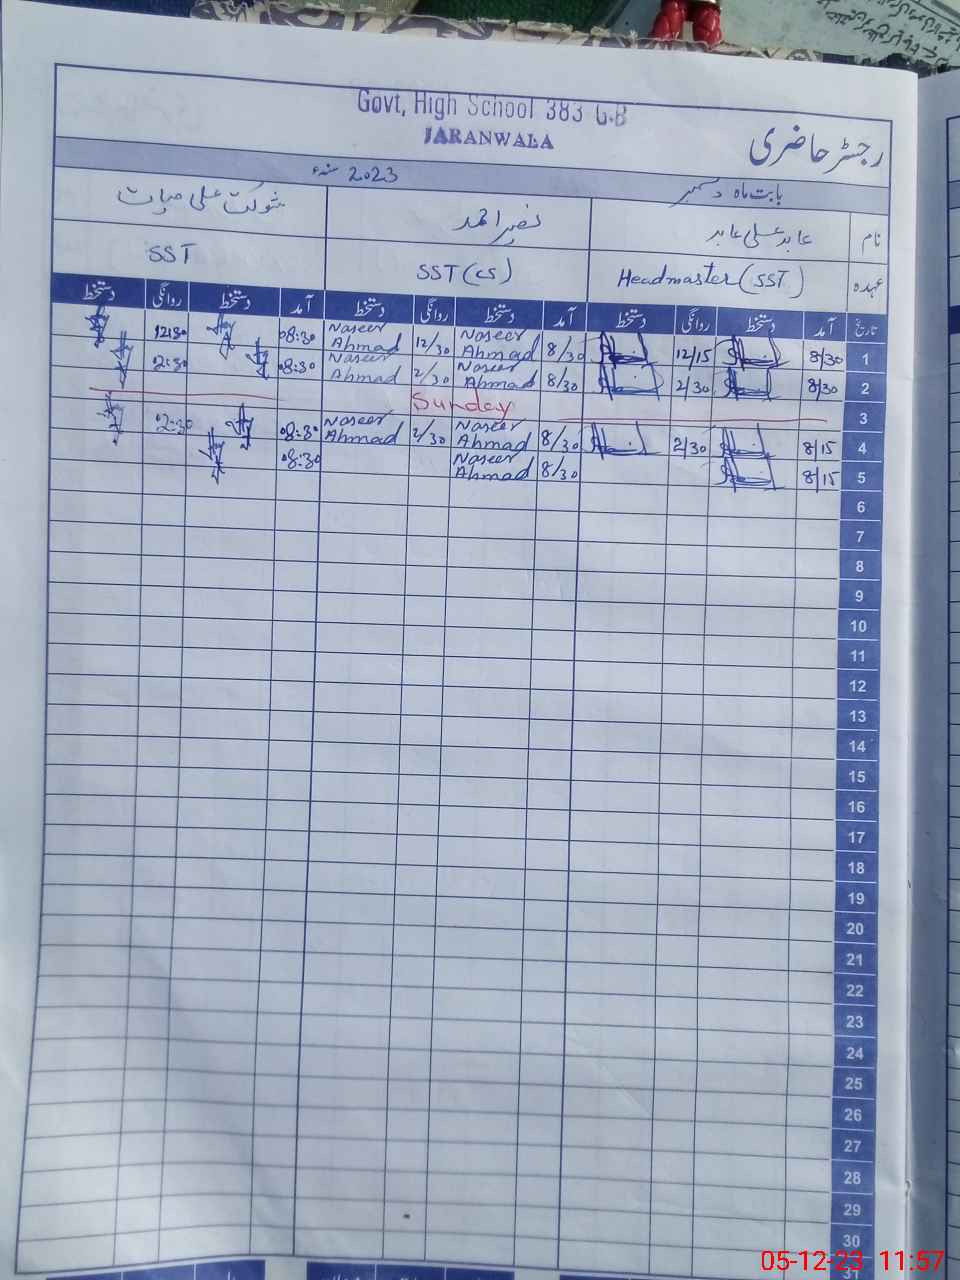 Govt, High School 383 G.B
JARANWALA
رجسٹر حاضری
بابت ماہ دسمبر 2023 سنہء
نام عابد علی عابد نصیر احمد شوکت علی حیات
عہدہ Headmaster (SST) SST (CS) SST
تاریخ آمد دستخط روانگی دستخط آمد دستخط روانگی دستخط آمد دستخط روانگی دستخط
1 8/30 12/15 8/30 Naseer Ahmad 12/30 Naseer Ahmad 08:30 12:30
2 8/30 2/30 8/30 Naseer Ahmad 2/30 Naseer Ahmad 08:30 2:30
3 Sunday
4 8/15 2/30 8/30 Naseer Ahmad 2/30 Naseer Ahmad 08:30 02:30
5 8/15 8/30 Naseer Ahmad 08:30
6
7
8
9
10
11
12
13
14
15
16
17
18
19
20
21
22
23
24
25
26
27
28
29
30
05-12-23 11:57